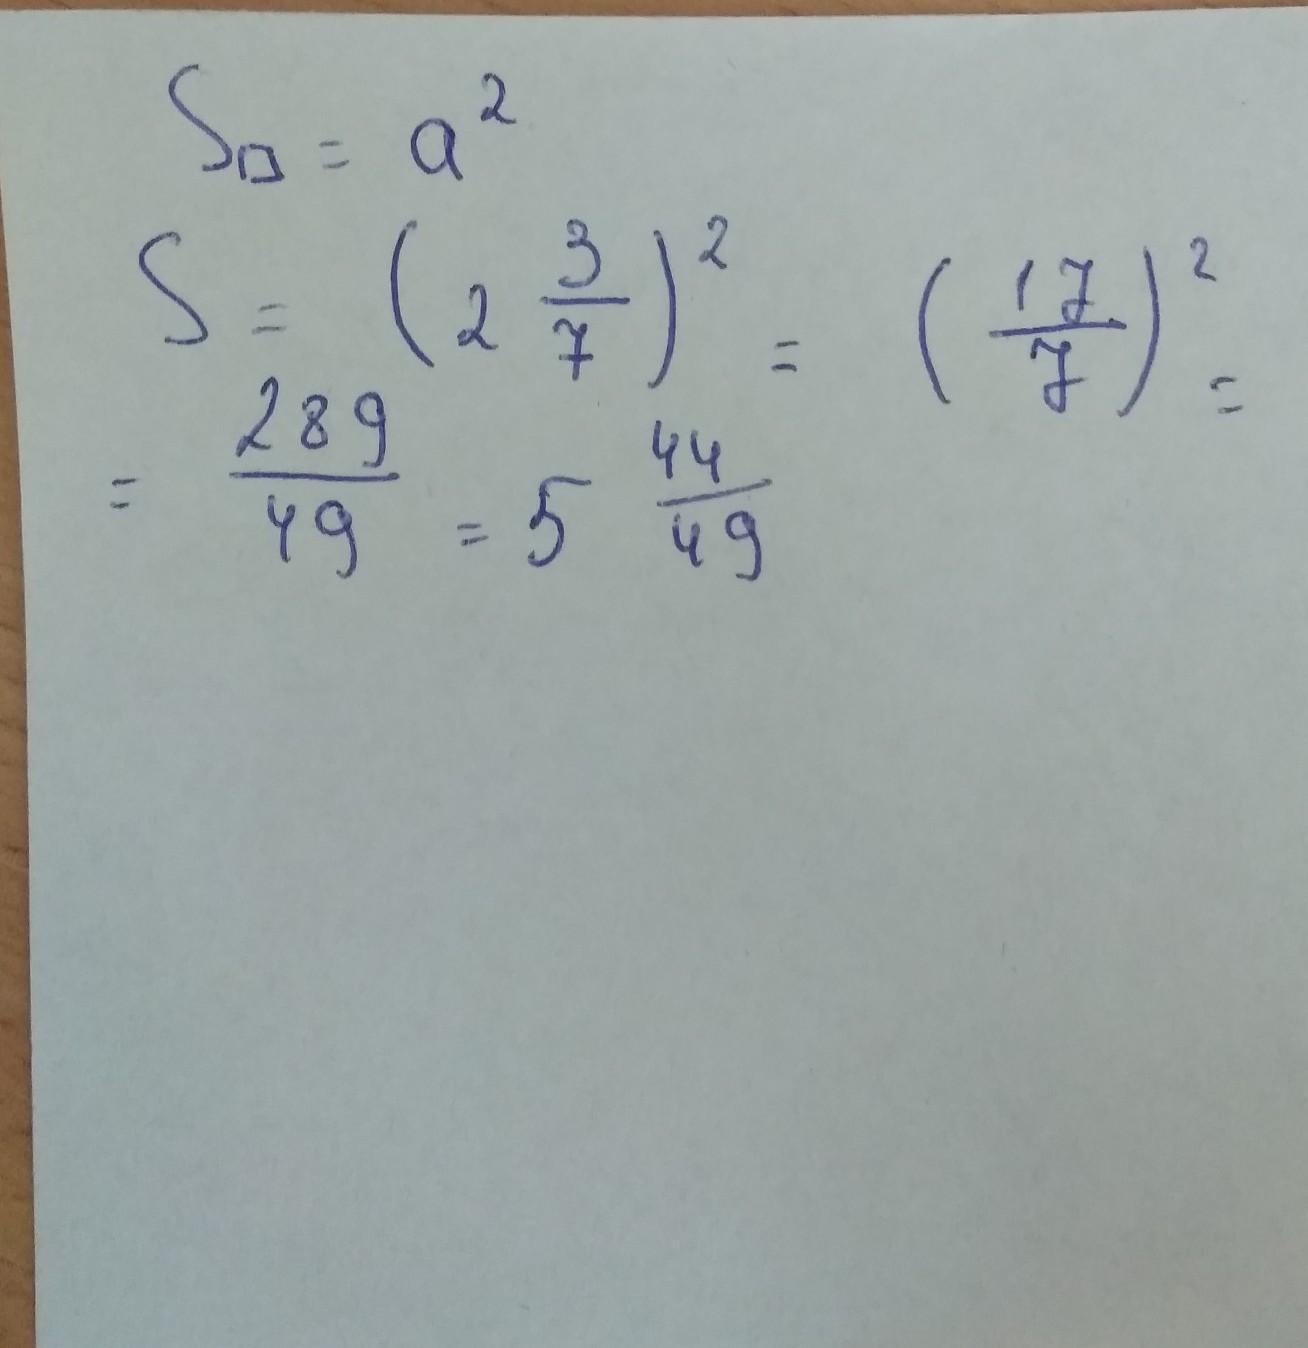 S□ = a²
S = (2 3/7)² = (17/7)² =
= 289/49 = 5 44/49